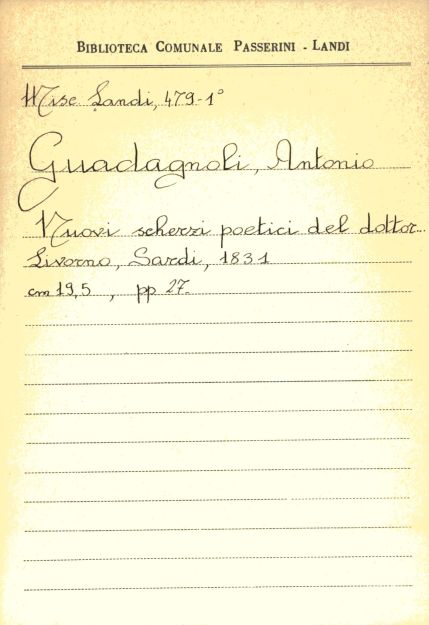 BIBLIOTECA COMUNALE PASSERINI - LANDI
Misc. Landi, 479-1°
Guadagnoli, Antonio
Nuovi scherzi poetici del dottor...
Livorno, Sardi, 1831
cm 19,5 , pp 27.